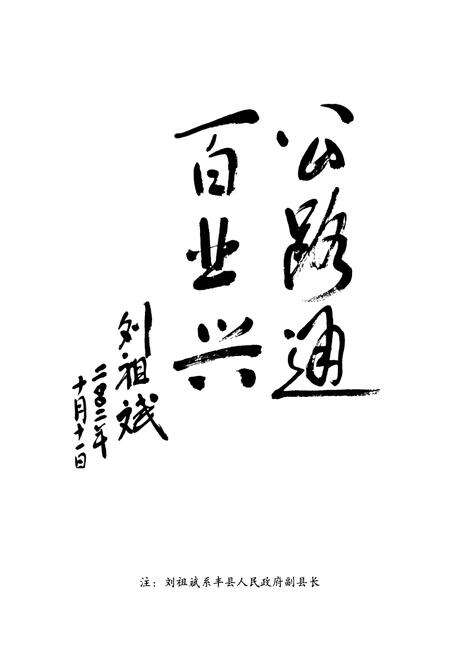 公路通
百业兴
刘祖斌
二〇〇二年
十月十一日
注：刘祖斌系丰县人民政府副县长